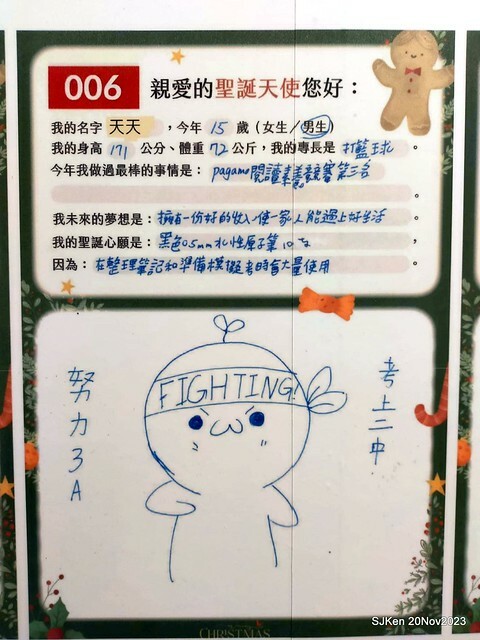 006 親愛的聖誕天使您好：
我的名字 天天 ，今年 15 歲（女生／男生）
我的身高 171 公分、體重 72 公斤，我的專長是 打籃球 。
今年我做過最棒的事情是： pagamo閱讀素養競賽第三名
。
我未來的夢想是：擁有一份好的收入，使一家人能過上好生活 。
我的聖誕心願是：黑色0.5mm水性原子筆10支 。
因為：在整理筆記和準備模擬考時會大量使用 。
FIGHTING!
努力3A
考上二中
CHRISTMAS
SJKen 20Nov2023